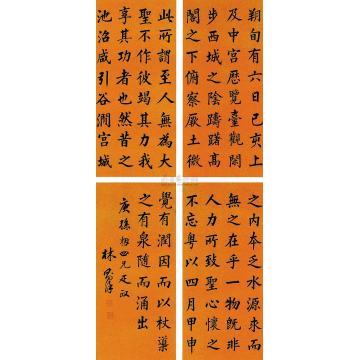 此所謂至人無為大
聖不作彼竭其力我
享其功者也然昔之
池沼咸引谷澗宮城
之内本乏水源求而
無之在乎一物既非
人力所致聖心懷之
不忘粵以四月甲申
朔旬有六日己亥上
及中宮歷覽臺觀閒
步西城之陰躊躇高
閣之下俯察厥土微
覺有潤因而以杖導
之有泉隨而涌出
四兄
林則徐